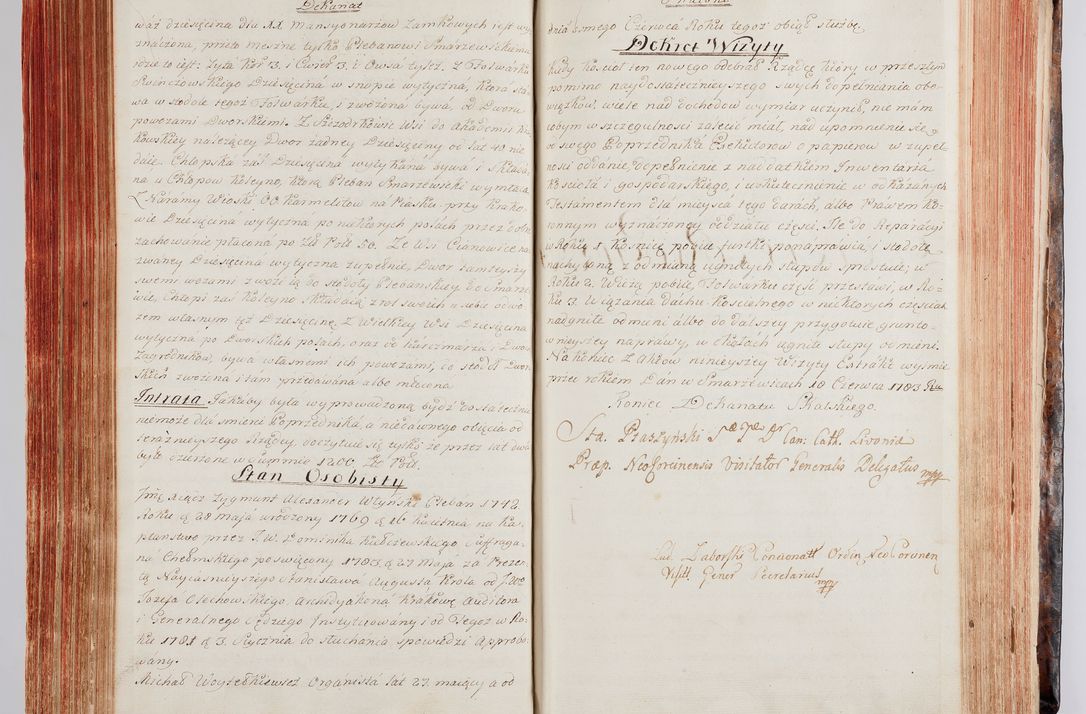 Dekanat
wáż dziesięcina dla XX Mansyonarzow Zamkowych iest wy
znáczona, przeto meszne tylko Plebanowi Smárzewskiemu
to iest: Zyta Kor 13. i Cwierć 3. i Owsa tyleż. Z Folwárku
Dziesięcina w snopie wytyczna, ktora sta
wa w stodole tegoż Folwárku, i zwożona bywa, od Dworu
powozámi Dworskiemi. Z Wsi do Akádemii Kra
kowskiey náleżącey Dwor żádney Dziesięciny od lat 40 nie
dáie. Chłopska záś Dziesięcina wytykána bywa i składa
na u Chłopow koleyno, ktorą Pleban Smarzewski wymłáca
Z Náramy Wioski OO Karmelitow ná Piásku przy Krako
wie Dziesięcina wytyczna po niektorych polách przez
záchowánie płácona po Zł Pols 50. Ze Wsi Cianowice na
zwáney Dziesięcina wytyczna zupełnie, Dwor támteyszy
swemi wozámi zwozi ią do stodoły Plebanskiey do Smarze
wic, Chłopi záś koleyno składáią z rol swoich u siebie
zem własnym tęż Dziesięcinę. Z Wielkiey Wsi Dziesięcina
wytyczna po Dworskich polách, oraz od Karczmarza i Dwoch
Zagrodnikow, bywa własnemi ich powozami, do stodoł Dwor
skich zwożona i tám przedáwana álbo młocona
Intrata Jakáby była wyprowadzoną bydź dostátecznie
niemoże dla śmierci Poprzedniká, a niedáwnego obięcia od
teráznieyszego Rządcy, doczytuie się tylko że przez lat dwa
było w Summie 1200 Zło Pols.
Stan Osobisty
Jmę Xiądz Zygmunt Alexander Pleban 1742.
Roku d 28 Maja urodzony 1769 d 16 Kwietnia ná Ka
płaństwo przez J. W. Dominika Kiełczewskiego Suffraga
ná Chełmskiego poswięcony 1783 d 27 Maja za Prezen
tą Nayiasnieyszego Stanisłáwa Augusta Krola od J. Xdza
Jozefa Olechowskiego, Archidyakoná Krakowsk Auditora
i Generalnego Sędziego Instytuowány i od Tegoż w Ro
ku 1781 d 3. Stycznia do słuchania Spowiedzi Approbo
wány.
Michał Woytaśkiewicz Organista lat 27. maiący a od
dnia 1mego Czerwca Roku tegoż obiął służbę.
Dekret Wizyty
Kiedy Kościoł ten nowego odebrał Rządcę, ktory w przeszłym
pomimo naydostatecznieyszego swych dopełnienia obo
wiązkow, wiele nad dochodow wymiar uczynił, nie mám
cobym w szczegulności zalecić miał, nad upomnienie się
od swego Poprzedniká Exekutorow o papierow w zupeł
ności oddanie, dopełnienie z naddátkiem Inwentarza
Kościoła i gospodarskiego, i uskutecznienie w okázánych
Testamentem dla mieysca tego darách, álbo Prawem Ko
ronnym wyznáczoney oddziału części. Ile do Reparácyi
w Roku 1. Kosnicę pobiie, furtki ponápráwia, i stodołę
náchyloną z odmianą ugniłych słupow sprostuie; w
Roku 2. Wieżą pobiie, Folwarku część przestawi, w Ro
ku 3. Wiązania Dáchu Kościelnego w niektorych częściach
nadgniłe odmieni álbo do dalszey przygotuie grunto
wnieyszey napráwy, w Chlewách ugniłe słupy odmieni.
Nákoniec Z Aktow ninieyszey Wizyty Extrakt wyimie
przed rokiem Dan w Smarzewicach 18 Czerwca 1783 Ru
Koniec Dekanatu Skalskiego.
Sta. Ptaszyński Can: Cath. Livoniæ
Præp. NeoCorcinensis Visitator Generalis Delegatus mpp
Lud. Zaborski Concionatt Ordin NeoCorcinen
Visitt. Gener Secretarius mpp